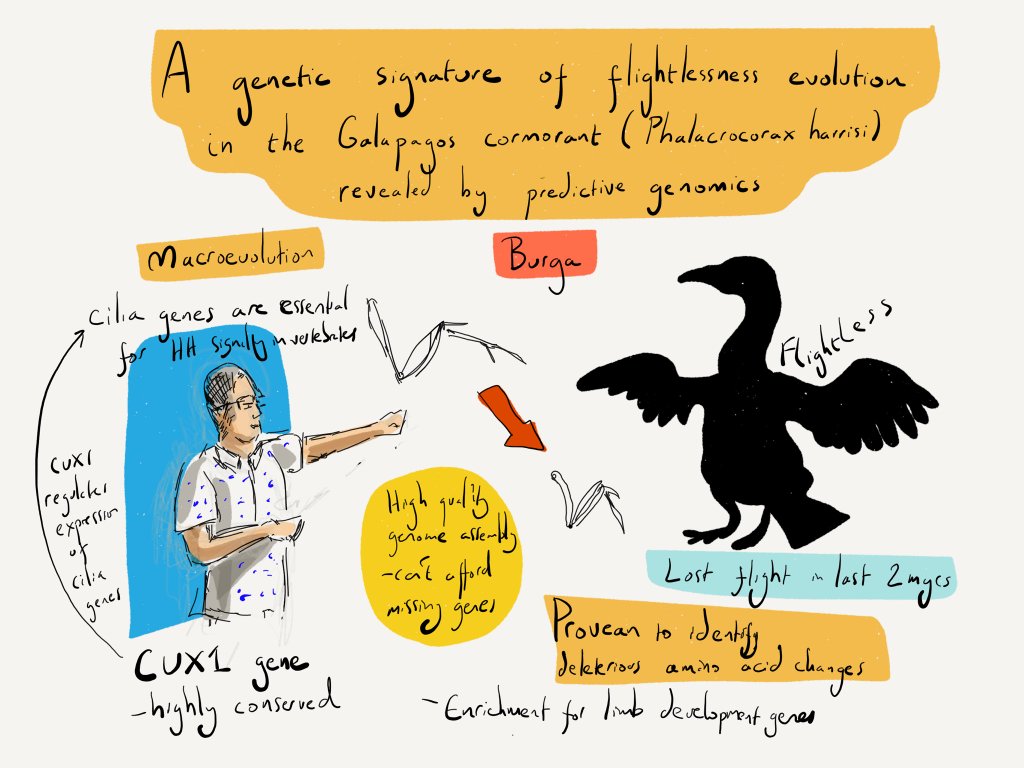 A genetic signature of flightlessness evolution
in the Galapagos cormorant (Phalacrocorax harrisi)
revealed by predictive genomics
Macroevolution
Burga
Cilia genes are essential
for HH signalling in vertebrates
Flightless
CUX1
regulates
expression
of
cilia
genes
High quality
genome assembly
- can't afford
missing genes
Lost flight in last 2 myrs
Provean to identify
deleterious amino acid changes
CUX1 gene
- highly conserved
- Enrichment for limb development genes